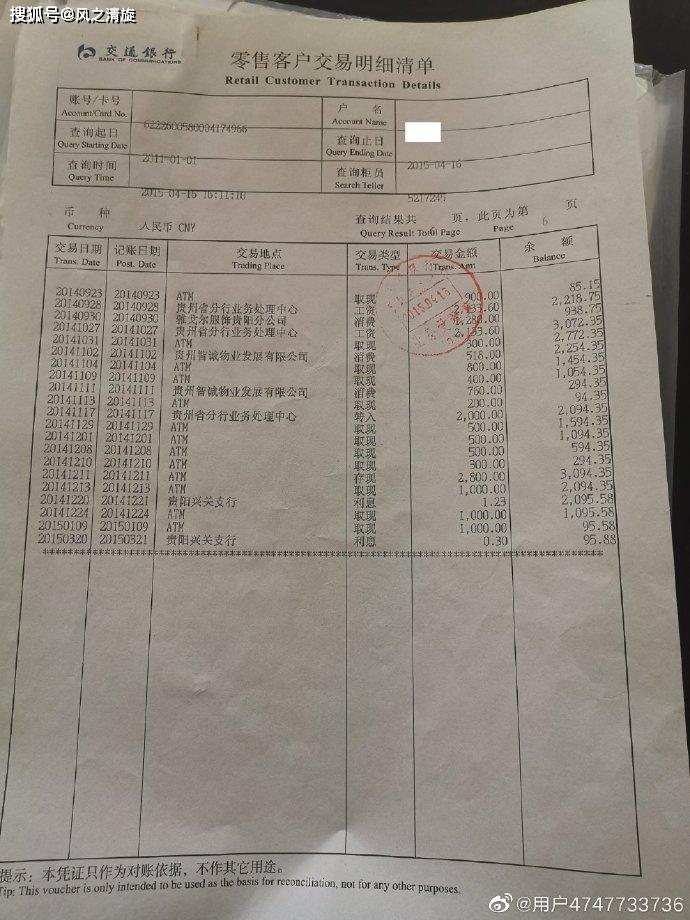 搜狐号@风之清旋
交通银行
BANK OF COMMUNICATIONS
零售客户交易明细清单
Retail Customer Transaction Details
账号/卡号
Account/Card No.
6222600580004174966
户 名
Account Name
查询起日
Query Starting Date
2011-01-01
查询止日
Query Ending Date
2015-04-16
查询时间
Query Time
2015-04-16 16:11:10
查询柜员
Search Teller
5217245
币 种
Currency
人民币 CNY
查询结果共 页，此页为第 6 页
Query Result: Total Page Page
交易日期 记账日期 交易地点 交易类型 交易金额 余 额
Trans. Date Post. Date Trading Place Trans. Type Trans. Amt Balance
20140923 20140923 ATM 取现 900.00 85.15
20140928 20140928 贵州省分行业务处理中心 工资 2,133.60 2,218.75
20140930 20140930 雅戈尔服饰贵阳分公司 消费 1,280.00 938.75
20141027 20141027 贵州省分行业务处理中心 工资 2,133.60 3,072.35
20141031 20141031 ATM 取现 300.00 2,772.35
20141102 20141102 贵州智诚物业发展有限公司 消费 518.00 2,254.35
20141104 20141104 ATM 取现 800.00 1,454.35
20141109 20141109 ATM 取现 400.00 1,054.35
20141111 20141111 贵州智诚物业发展有限公司 消费 760.00 294.35
20141113 20141113 ATM 取现 200.00 94.35
20141117 20141117 贵州省分行业务处理中心 转入 2,000.00 2,094.35
20141129 20141129 ATM 取现 500.00 1,594.35
20141201 20141201 ATM 取现 500.00 1,094.35
20141208 20141208 ATM 取现 500.00 594.35
20141210 20141210 ATM 取现 300.00 294.35
20141211 20141211 ATM 存现 2,800.00 3,094.35
20141213 20141213 ATM 取现 1,000.00 2,094.35
20141220 20141221 贵阳兴关支行 利息 1.23 2,095.58
20141224 20141224 ATM 取现 1,000.00 1,095.58
20150109 20150109 ATM 取现 1,000.00 95.58
20150320 20150321 贵阳兴关支行 利息 0.30 95.88
提示：本凭证只作为对账依据，不作其它用途。
Tip: This voucher is only intended to be used as the basis for reconciliation, not for any other purposes.
@用户4747733736